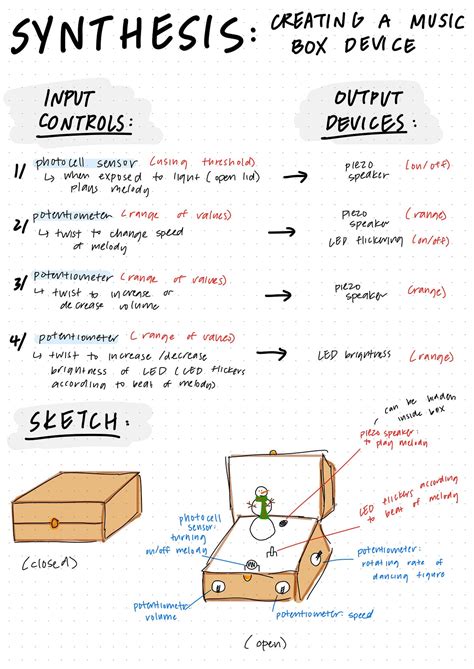 SYNTHESIS: CREATING A MUSIC
BOX DEVICE
INPUT
CONTROLS:
OUTPUT
DEVICES:
1/ photocell sensor (using threshold)
↳ when exposed to light (open lid)
plays melody
→ piezo
speaker (on/off)
2/ potentiometer (range of values)
↳ twist to change speed
of melody
→ piezo
speaker (range)
LED flickering (on/off)
3/ potentiometer (range of values)
↳ twist to increase or
decrease volume
→ piezo
speaker (range)
4/ potentiometer (range of values)
↳ twist to increase/decrease
brightness of LED (LED flickers
according to beat of melody)
→ LED brightness (range)
SKETCH:
(closed)
can be hidden
inside box
piezo speaker:
to play melody
LED flickers according
to beat of melody
photocell
sensor:
turning
on/off melody
potentiometer:
rotating rate of
dancing figure
potentiometer:
volume
potentiometer: speed
(open)